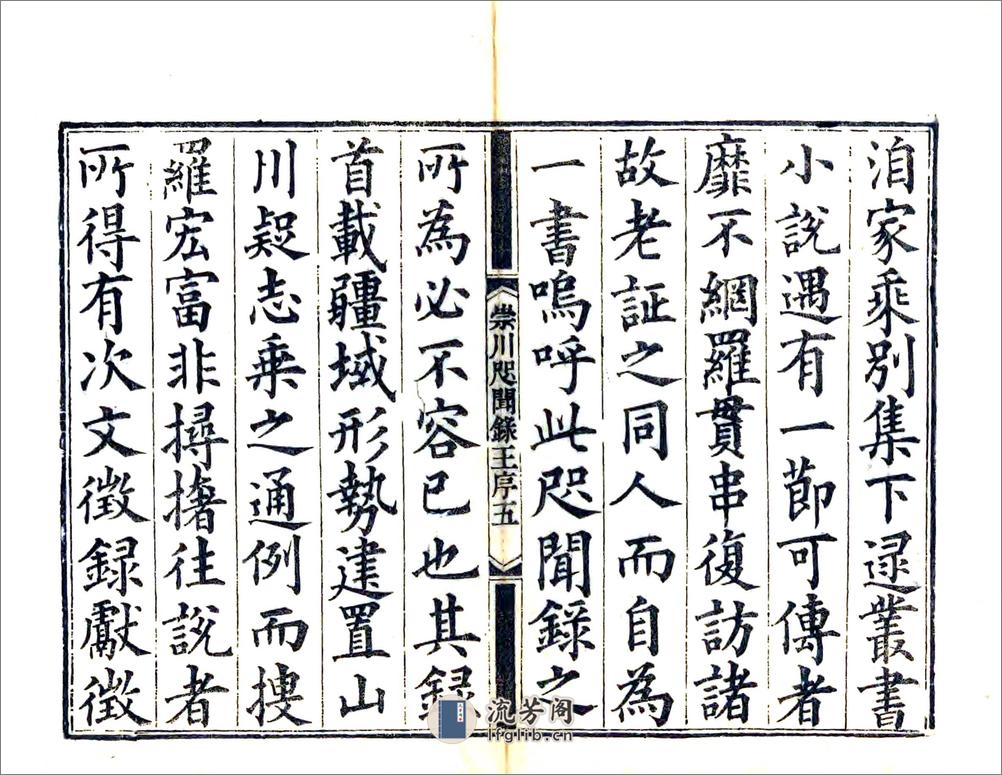 洎家乘別集下逯叢書
小說遇有一節可傳者
靡不網羅貫串復訪諸
故老証之同人而自為
一書嗚呼此咫聞錄之
崇川咫聞錄王序五
所為必不容已也其録
首載疆域形勢建置山
川疑志乘之通例而搜
羅宏富非撏撦往說者
所得有次文徵録獻徵
流芳阁
lfglib.cn